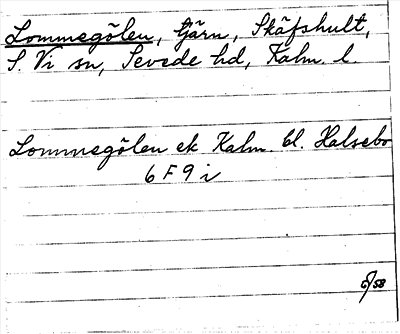 Lommegölen, tjärn, Skäfshult,
S. Vi sn, Sevede hd, Kalm. l.
Lommegölen ek Kalm. bl. Halsebo
6 F 9 i
/58